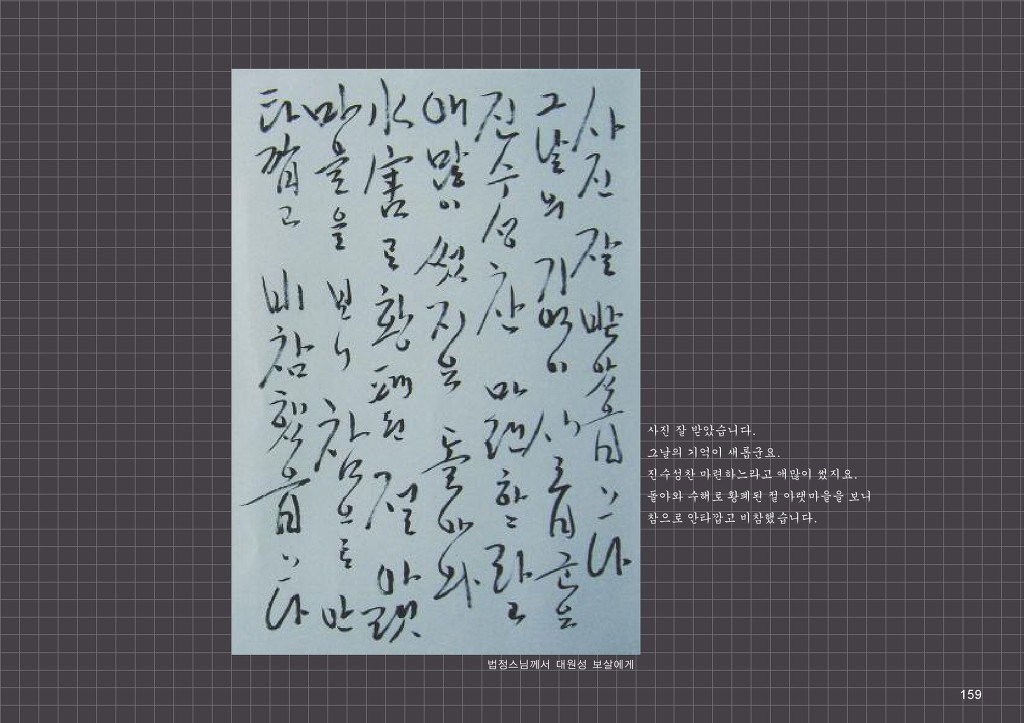 사진 잘 받았읍니다
그날의 기억이 새롭군요
진수성찬 마련하느라고
애많이 썼지요 돌아와
水害로 황폐된 절 아랫
마을을 보니 참으로 안
타깝고 비참했읍니다
사진 잘 받았습니다.
그날의 기억이 새롭군요.
진수성찬 마련하느라고 애많이 썼지요.
돌아와 수해로 황폐된 절 아랫마을을 보니
참으로 안타깝고 비참했습니다.
법정스님께서 대원성 보살에게
159